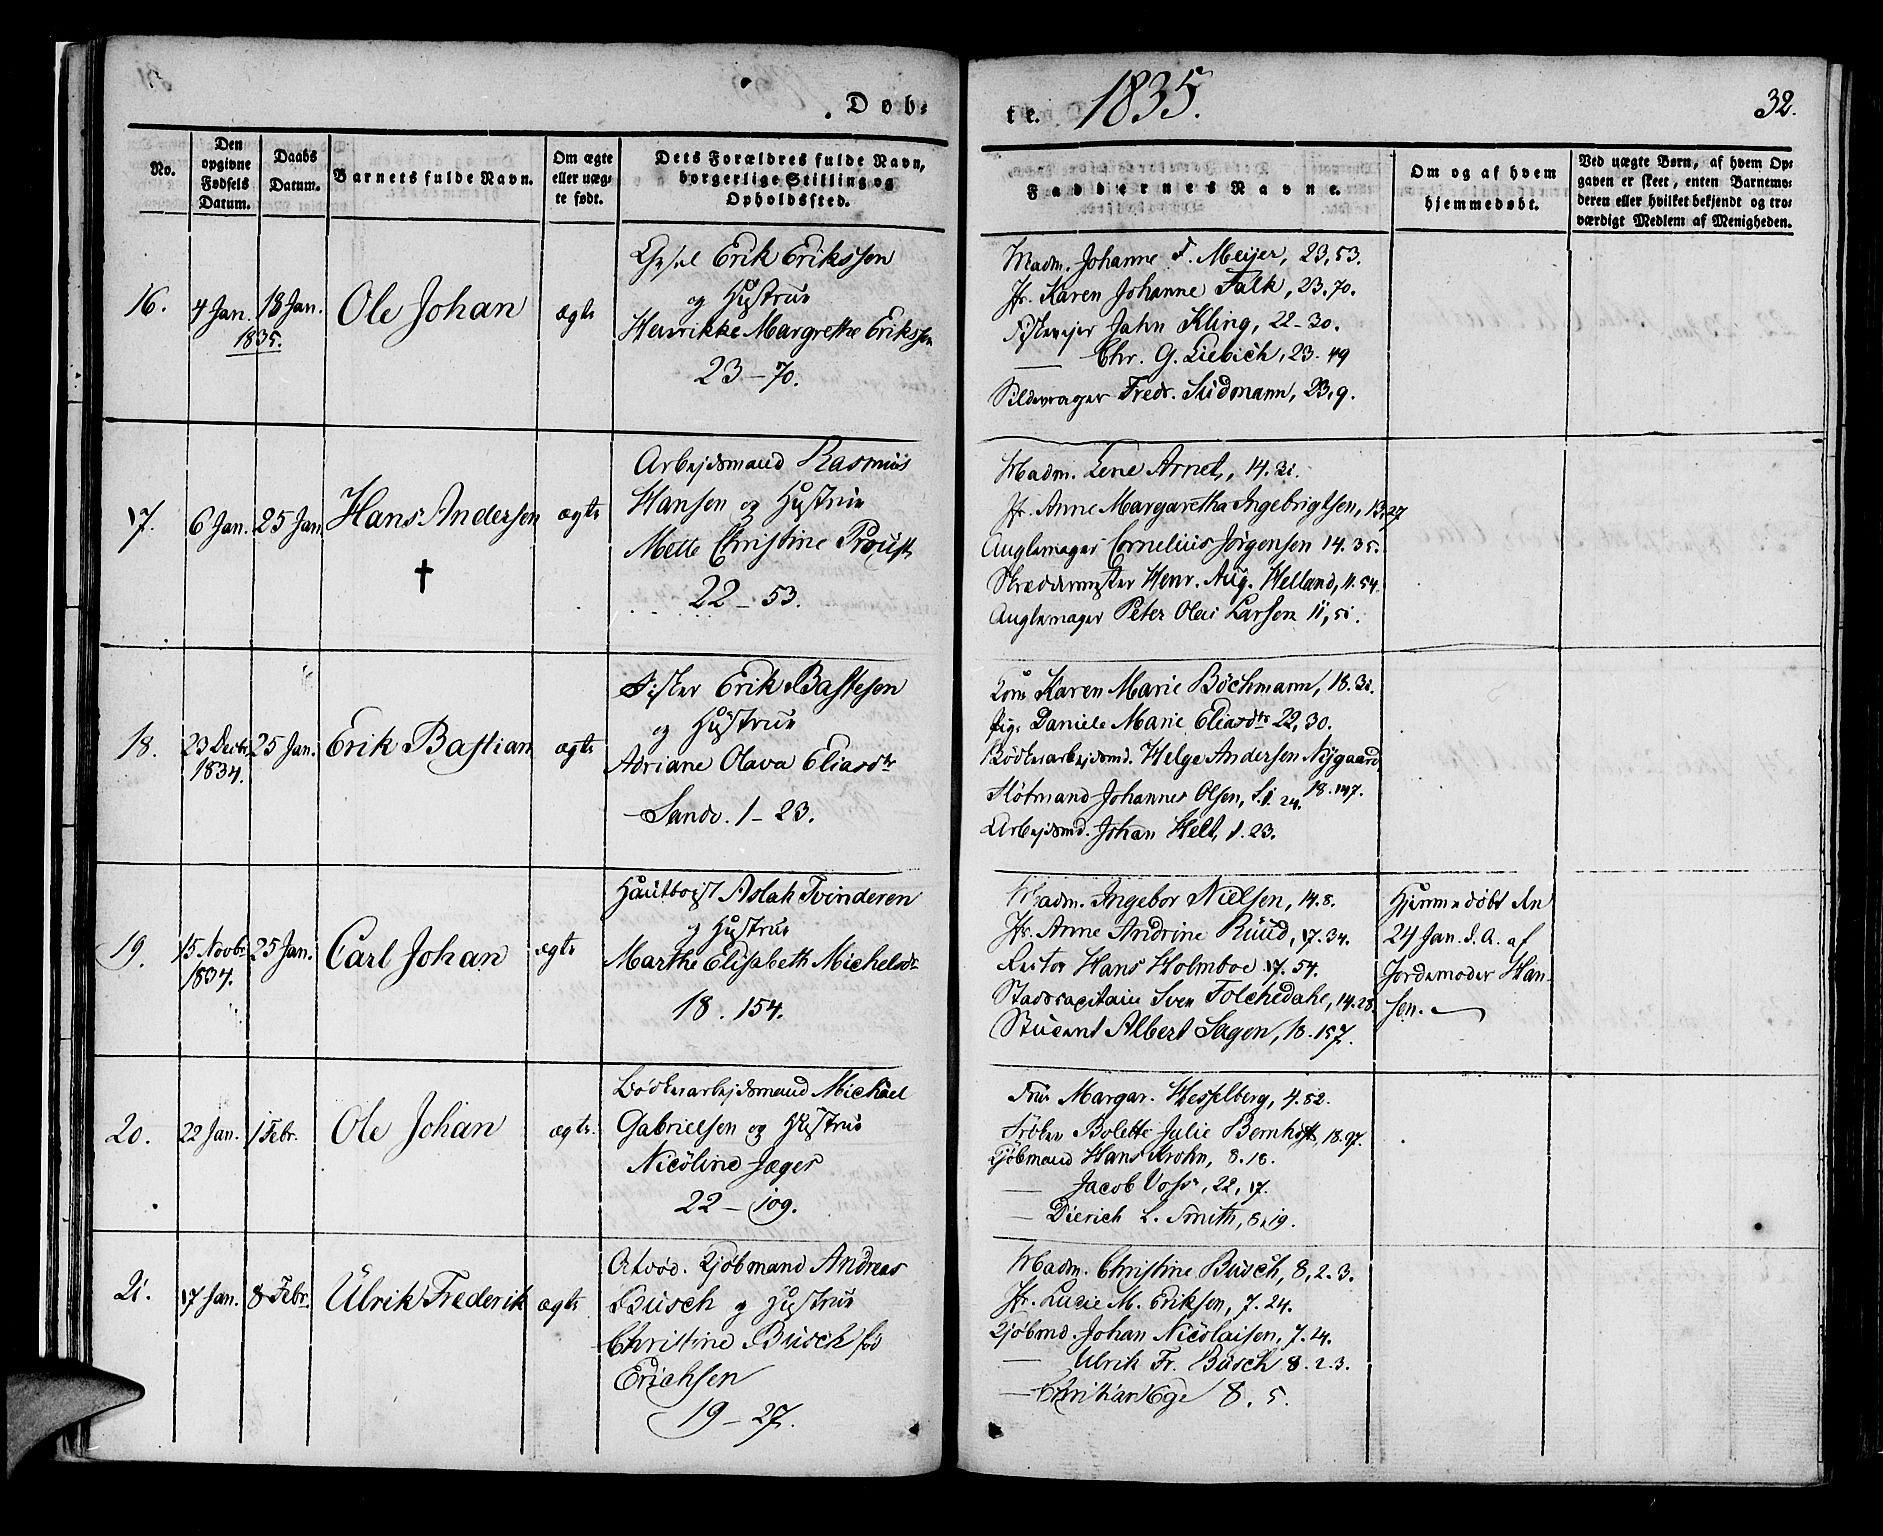 Døb-
te. 1835. 32.
No.
Den opgivne Fødsels Datum.
Daabs Datum.
Barnets fulde Navn.
Om ægte eller uægte født.
Dets Forældres fulde Navn, borgerlige Stilling og Opholdssted.
Faddernes Navne.
Om og af hvem hjemmedøbt.
Ved uægte Børn, af hvem Opgaven er skeet, enten Barnemoderen eller hvilket bekjendt og troværdigt Medlem af Menigheden.
16. 4 Jan. 18 Jan. 1835. Ole Johan ægte
Erik Erikssen
og Hustrue
Henrikke Margrethe Erikssen
23-70.
Madm. Johanne F. Meijer, 23,53.
Jfr. Karen Johanne Falk, 23.70.
Jahn Kling, 22-30.
— Chr. G. Liebich, 23-49
Sildevrager Fredr. Sudmann, 23,9.
17. 6 Jan. 25 Jan. Hans Andersen ægte
†
Arbejdsmand Rasmus
Hansen og Hustrue
Mette Christine Proust
22-53.
Madm. Lene Arnet, 14.31.
Jfr. Anne Margaretha Ingebrigtsen, 13.27
Cornelius Jørgensen 14.35.
Skrædermester Henr. Aug. Helland, 11.54.
Peter Olai Larsen 11,51.
18. 23 Decbr 1834. 25 Jan. Erik Bastian ægte
Fisker Erik Bastesen
og Hustrue
Adriane Olava Eliasdtr
Sandv. 1-23.
Kone Karen Marie Böchmann, 18.31.
Pige Daniele Marie Eliasdtr 22,30.
Bødkerarbejdsmd. Helge Andersen Nygaard,
18.147.
Johannes Olsen, S.1.24.
Arbejdsmd. Johan Helt, 1.23.
19. 15 Novbr 1834. 25 Jan. Carl Johan ægte
Hautboist Aslak Tvinderen
og Hustrue
Marthe Elisabeth Michelsdr
18.154.
Madm. Ingebor Nielsen, 14.8.
Jfr. Anne Andrine Ruud, 17.34.
Rector Hans Holmboe 17.54.
Stadscapitain Sven Folchedahl, 14.28.
Student Albert Sagen, 18.157.
Hjemmedøbt den
24 Jan. d.A. af
Jordemoder Han-
sen.
20. 22 Jan. 1 Febr. Ole Johan ægte
Bødkerarbejdsmand Michael
Gabrielsen og Hustrue
Nicoline Jæger
22-109.
Frue Margar. Hesselberg, 4.52.
Frøken Bolette Julie Bernhoft, 18.97.
Kjøbmand Hans Krohn, 8.18.
— Jacob Voss, 22,17.
— Dierich L. Smith, 8,19.
21. 17 Jan. 8 Febr. Ulrik Frederik ægte
Kjøbmand Andreas
Busch og Hustrue
Christine Busch fød
Erichsen
19-27.
Madm. Christine Busch, 8,2.3.
Jfr. Lucie M. Eriksen, 7.24.
Kjøbmd. Johan Nicolaisen, 7.14.
— Ulrik Fr. Busch 8.2.3.
— Christian Ege 8.5.